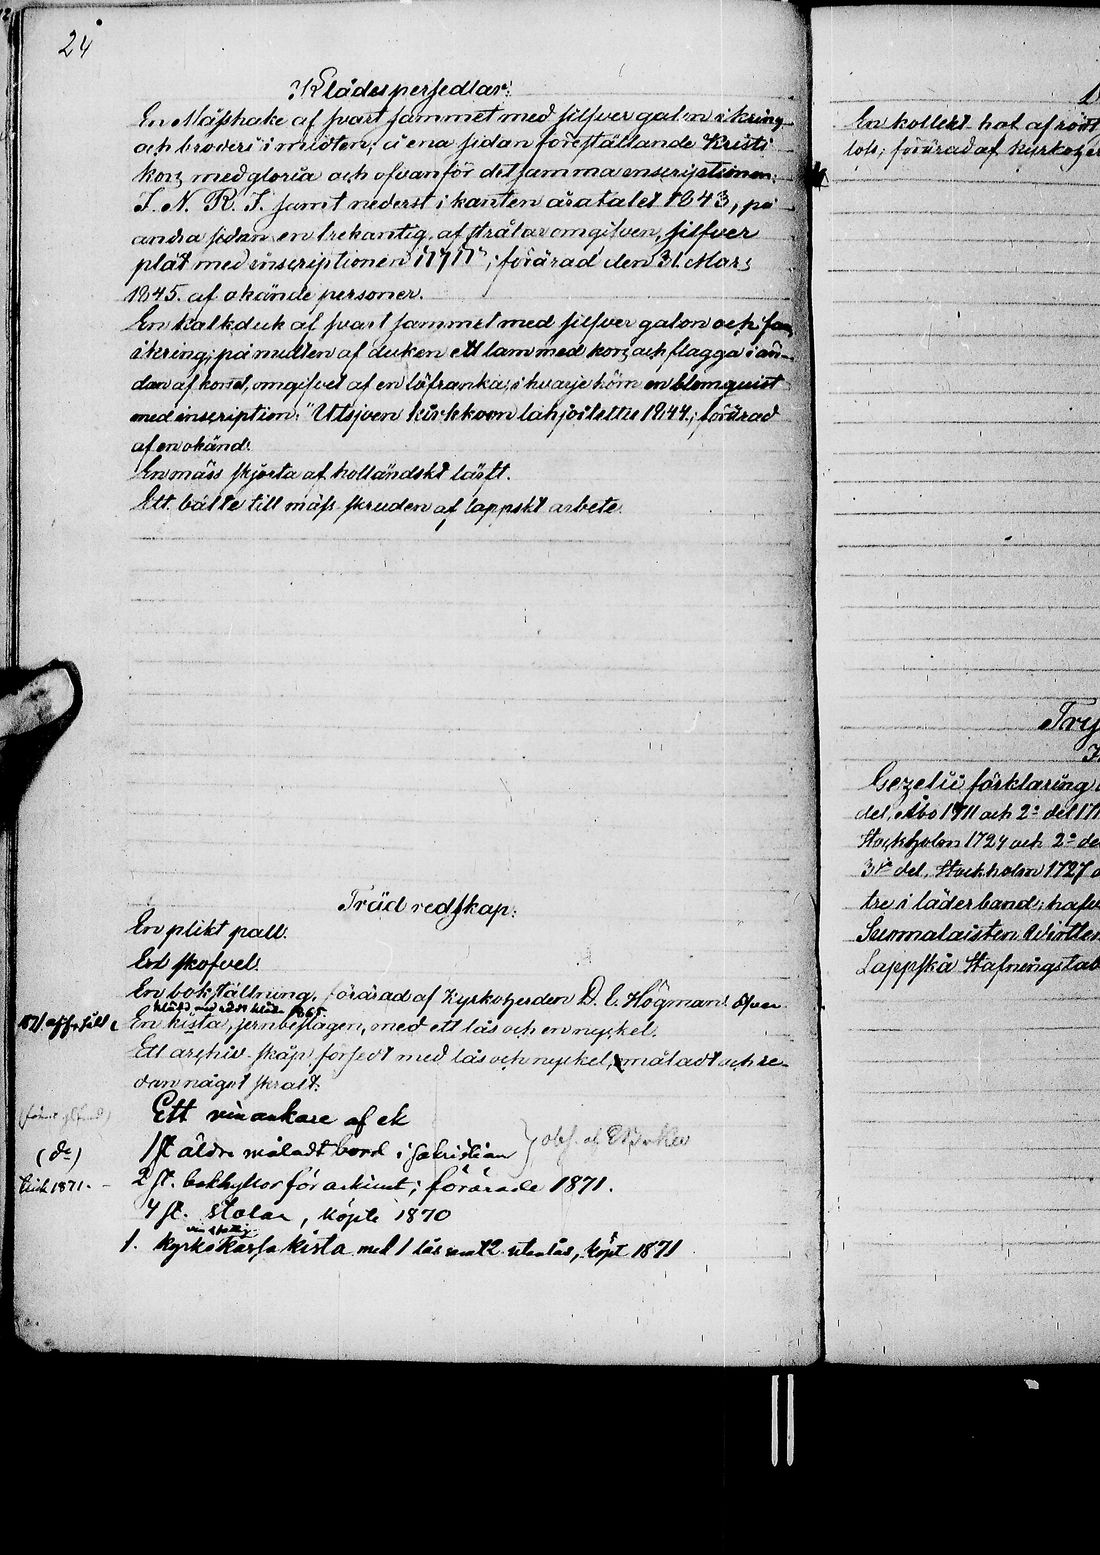 24
Klädespersedlar:
En Mässhake af svart sammet med silfver galon ikring
och broderi i midten, å ena sidan föreställande Kristi
kors med gloria och ofvanför detsamma inscriptionen:
I. N. R. I. samt nederst i kanten åratalet 1843, på
andra sidan en trekantig, af strålar omgifven, silfver
plåt med inscriptionen יהוה; förärad den 31. Mars
1845. af okände personer.
En kalkduk af svart sammet med silfver galon och
ikring; på midten af duken ett lam med kors och flagga i än-
dan af korset, omgifvet af en löfranka; i hvarje hörn en blomquist
med inscription: "Utsjoen kirkkoon lahjoitettu 1844.; förärad
af en okänd.
En mäss skjorta af holländskt läfft.
Ett bälte till mäss-skruden af lappskt arbete.
Träd redskap:
En plikt pall.
En skofvel.
En bokställning, förärad af Kyrkoherden D. E. Högman. öfver
klädd med rödt kläde 1865.
En kista, jernbeslagen, med ett lås och en nyckel.
Ett archiv-skåp försedt med lås och nyckel, måladt och re-
dan något skralt.
Ett vinankare af ek
(do)
1 st äldre måladt bord i sakristian
} obs. af
1871. -
2 st. bokhyllor för arkivet; förärade 1871.
4 st. stolar, köpte 1870
1. Kyrkokassa kista med 1 lås samt 2 utanlås, köpt 1871
En kollekt-håf af rödt
lofs; förärad af Kyrkoher
Try
Gezelii förklaring
del, Åbo 1711 och 2a del 171
Stockholm 1724 och 2a de
3ie del, Stockholm 1727
tre i läderband; hafv
Suomalaisten Wirtten
Lappska Stafningstab